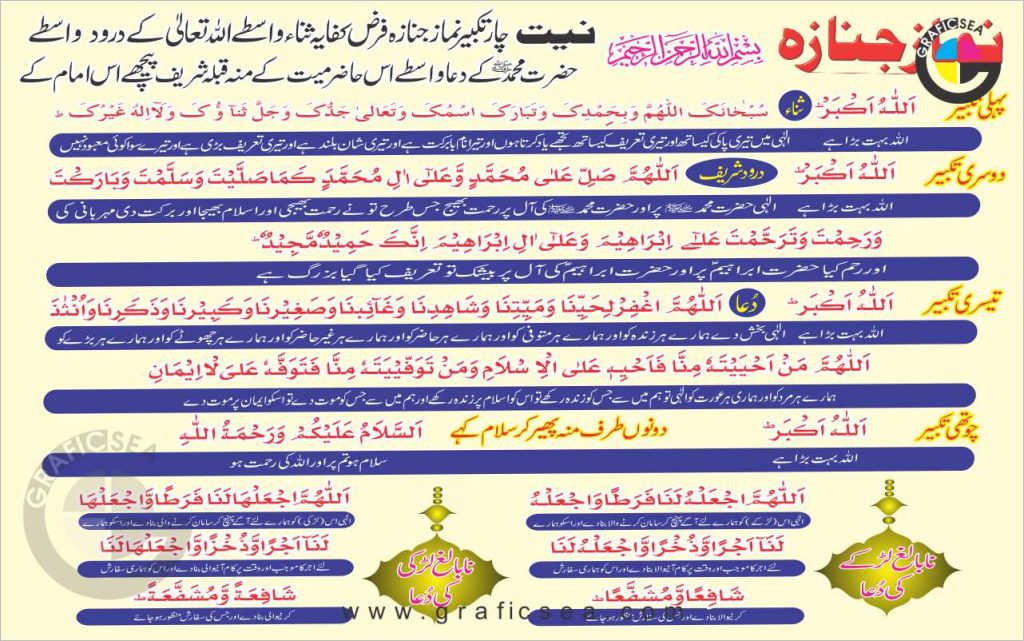 نماز جنازہ
بسم اللہ الرحمن الرحیم
نیت چار تکبیر نماز جنازہ فرض کفایہ ثناء واسطے اللہ تعالیٰ کے درود واسطے
حضرت محمد ﷺ کے دعا واسطے اس حاضر میت کے منہ قبلہ شریف پیچھے اس امام کے
پہلی تکبیر اَللّٰهُ اَكْبَرْ ثناء سُبْحَانَكَ اللّٰهُمَّ وَبِحَمْدِكَ وَتَبَارَكَ اسْمُكَ وَتَعَالٰى جَدُّكَ وَجَلَّ ثَنَآؤُكَ وَلَآاِلٰهَ غَيْرُكَ
اللہ بہت بڑا ہے الٰہی میں تیری پاکی کیساتھ اور تیری تعریف کیساتھ تجھے یاد کرتا ہوں اور تیرا نام بابرکت ہے اور تیری شان بلند ہے اور تیری تعریف بڑی ہے اور تیرے سوا کوئی معبود نہیں
دوسری تکبیر اَللّٰهُ اَكْبَرْ درود شریف اَللّٰهُمَّ صَلِّ عَلٰى مُحَمَّدٍ وَّعَلٰٓى اٰلِ مُحَمَّدٍ كَمَا صَلَّيْتَ وَسَلَّمْتَ وَبَارَكْتَ
اللہ بہت بڑا ہے الٰہی حضرت محمد ﷺ پر اور حضرت محمد ﷺ کی آل پر رحمت بھیج جس طرح تو نے رحمت بھیجی اور اسلام بھیجا اور برکت دی مہربانی کی
وَرَحِمْتَ وَتَرَحَّمْتَ عَلٰٓى اِبْرَاهِيْمَ وَعَلٰٓى اٰلِ اِبْرَاهِيْمَ اِنَّكَ حَمِيْدٌ مَّجِيْدٌ
اور رحم کیا حضرت ابراہیمؑ پر اور حضرت ابراہیمؑ کی آل پر بیشک تو تعریف کیا گیا بزرگ ہے
تیسری تکبیر اَللّٰهُ اَكْبَرْ دُعا اَللّٰهُمَّ اغْفِرْ لِحَيِّنَا وَمَيِّتِنَا وَشَاهِدِنَا وَغَآئِبِنَا وَصَغِيْرِنَا وَكَبِيْرِنَا وَذَكَرِنَا وَاُنْثٰنَا
اللہ بہت بڑا ہے الٰہی بخش دے ہمارے ہر زندہ کو اور ہمارے ہر متوفی کو اور ہمارے ہر حاضر کو اور ہمارے ہر غیر حاضر کو اور ہمارے ہر چھوٹے کو اور ہمارے ہر بڑے کو
اَللّٰهُمَّ مَنْ اَحْيَيْتَهٗ مِنَّا فَاَحْيِهٖ عَلَى الْاِسْلَامِ وَمَنْ تَوَفَّيْتَهٗ مِنَّا فَتَوَفَّهٗ عَلَى الْاِيْمَانِ
ہمارے ہر مرد کو اور ہماری ہر عورت کو الٰہی تو ہم میں سے جس کو زندہ رکھے تو اس کو اسلام پر زندہ رکھے اور ہم میں سے جس کو موت دے تو اسکو ایمان پر موت دے
چوتھی تکبیر اَللّٰهُ اَكْبَرْ دونوں طرف منہ پھیر کر سلام کہے اَلسَّلَامُ عَلَيْكُمْ وَرَحْمَةُ اللّٰهِ
اللہ بہت بڑا ہے سلام ہو تم پر اور اللہ کی رحمت ہو
نابالغ لڑکے کی دُعا
اَللّٰهُمَّ اجْعَلْهُ لَنَا فَرَطًا وَّاجْعَلْهُ
الٰہی اس (لڑکے) کو ہمارے لئے آگے پہنچ کر سامان کرنے والا بنا دے اور اسکو ہمارے
لَنَآ اَجْرًا وَّذُخْرًا وَّاجْعَلْهُ لَنَا
لئے اجر کا موجب اور وقت پر کام آنیوالا بنا دے اور اس کو ہماری سفارش
شَافِعًا وَّمُشَفَّعًا
کرنیوالا بنا دے اور جس کی سفارش منظور ہو جائے
نابالغ لڑکی کی دُعا
اَللّٰهُمَّ اجْعَلْهَا لَنَا فَرَطًا وَّاجْعَلْهَا
الٰہی اس (لڑکی) کو ہمارے لئے آگے پہنچ کر سامان کرنے والی بنا دے اور اسکو ہمارے
لَنَآ اَجْرًا وَّذُخْرًا وَّاجْعَلْهَا لَنَا
لئے اجر کا موجب اور وقت پر کام آنیوالی بنا دے اور اس کو ہماری سفارش
شَافِعَةً وَّمُشَفَّعَةً
کرنیوالی بنا دے اور جس کی سفارش منظور ہو جائے
GRAFICSEA
GRAFICSEA
www.graficsea.com